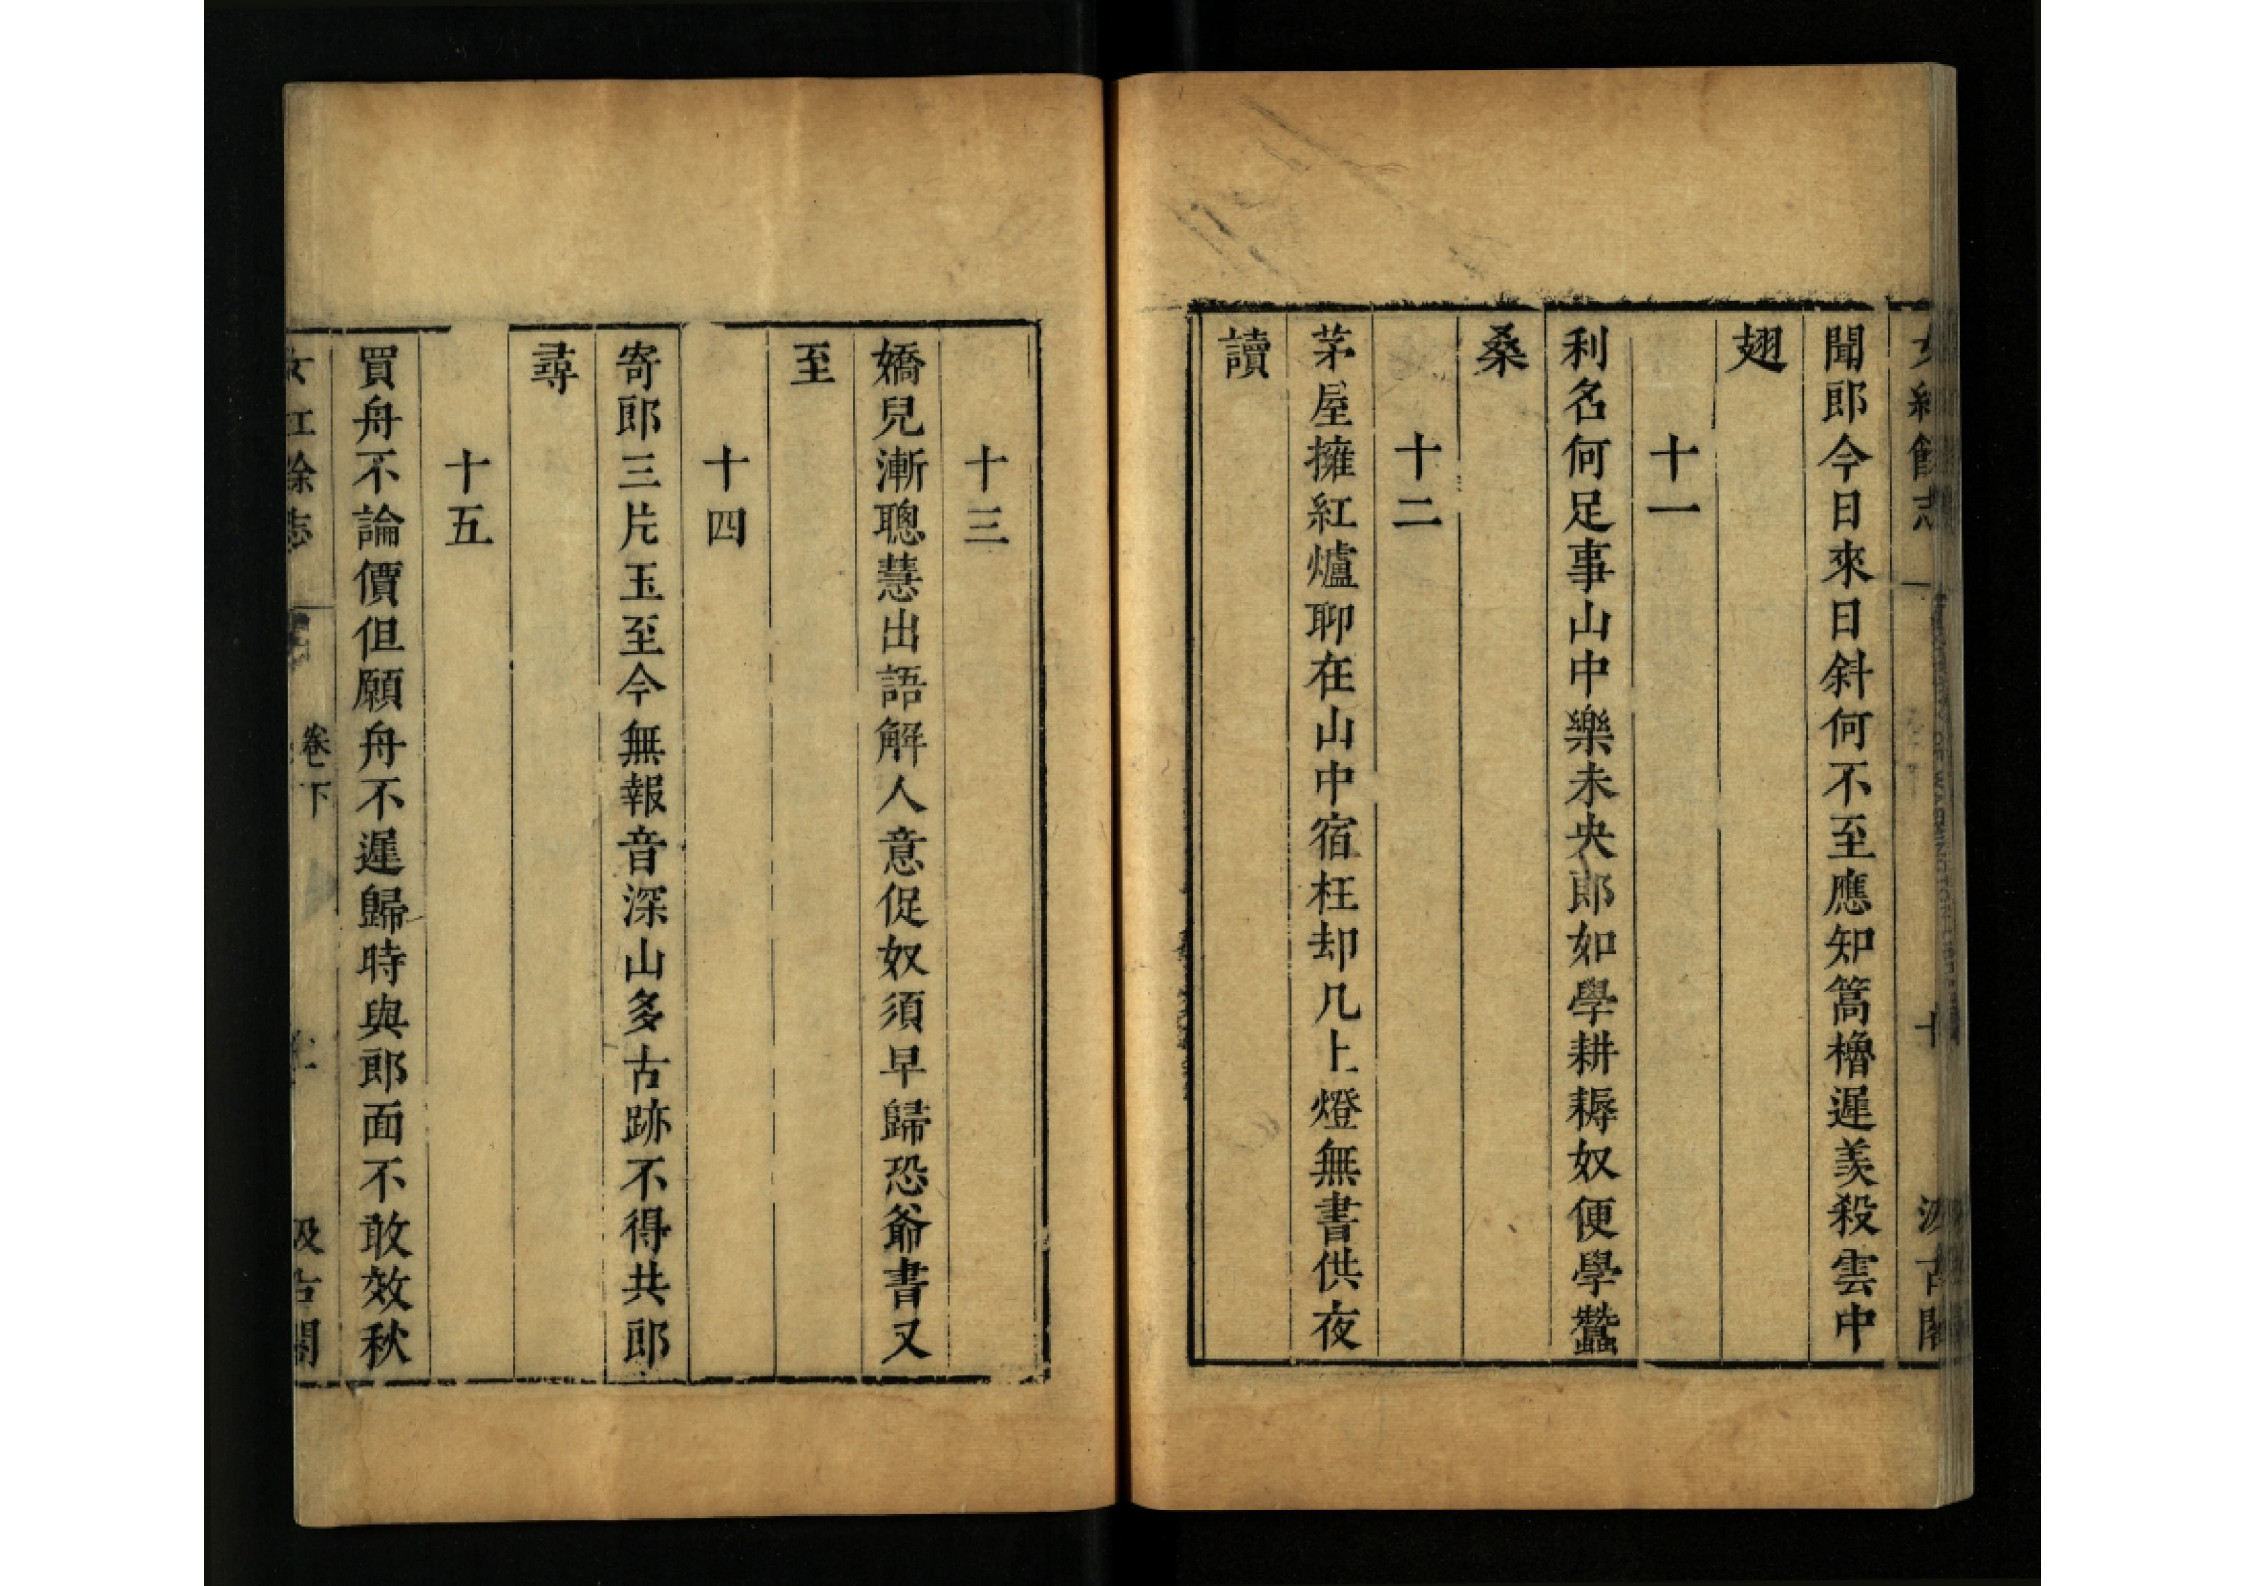 聞郎今日來日斜何不至應知篙櫓遲羡殺雲中
翅
十一
利名何足事山中樂未央郎如學耕耨奴便學蠶
桑
十二
茅屋擁紅爐聊在山中宿枉却几上燈無書供夜
讀
十三
嬌兒漸聰慧出語解人意促奴須早歸恐爺書又
至
十四
寄郎三片玉至今無報音深山多古跡不得共郎
尋
十五
買舟不論價但願舟不遲歸時與郎面不敢效秋
卷下